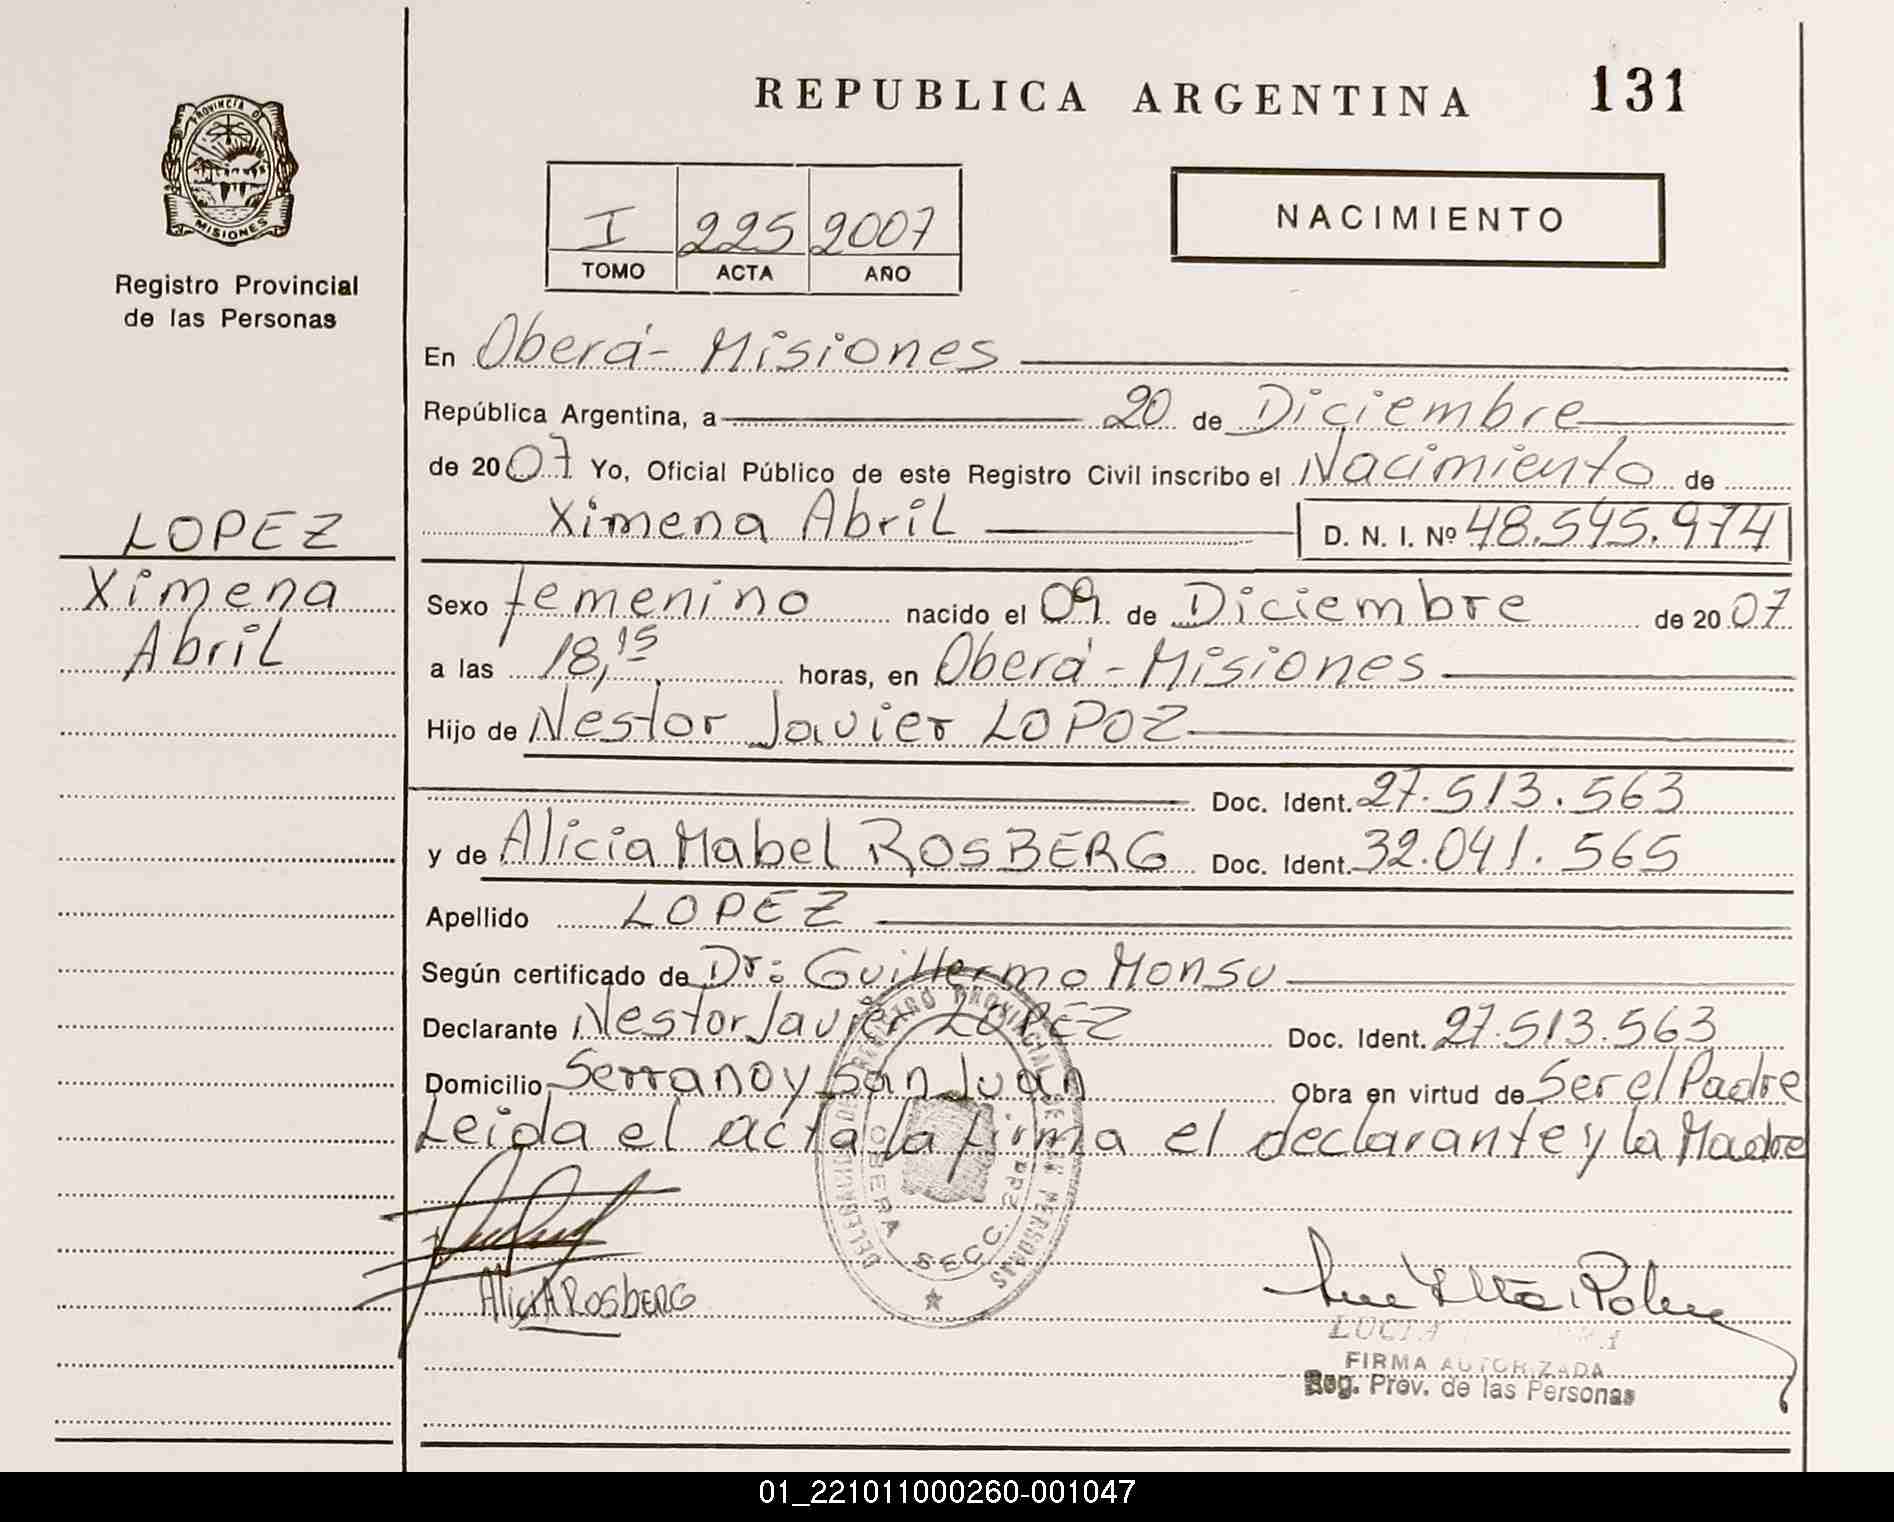 REPUBLICA ARGENTINA 131
PROVINCIA DE
MISIONES
Registro Provincial
de las Personas
I 225 2007
TOMO ACTA AÑO
NACIMIENTO
En Oberá - Misiones
República Argentina, a 20 de Diciembre
de 2007 Yo, Oficial Público de este Registro Civil inscribo el Nacimiento de
Ximena Abril D. N. I. Nº 48.545.974
LOPEZ
Ximena
Abril
Sexo femenino nacido el 09 de Diciembre de 2007
a las 18,15 horas, en Oberá - Misiones
Hijo de Nestor Javier LOPOZ
Doc. Ident. 27.513.563
y de Alicia Mabel ROSBERG Doc. Ident. 32.041.565
Apellido LOPEZ
Según certificado de Dr: Guillermo Monsu
Declarante Nestor Javier LOPEZ Doc. Ident. 27.513.563
Domicilio Serrano y San Juan Obra en virtud de Ser el Padre
Leida el acta la firma el declarante y la Madre
DELEGACION DE REGISTRO PROVINCIAL DE LAS PERSONAS
OBERA SECC. 2da.
AliciA ROSbERG
LUCIA
FIRMA AUTORIZADA
Reg. Prov. de las Personas
01_221011000260-001047